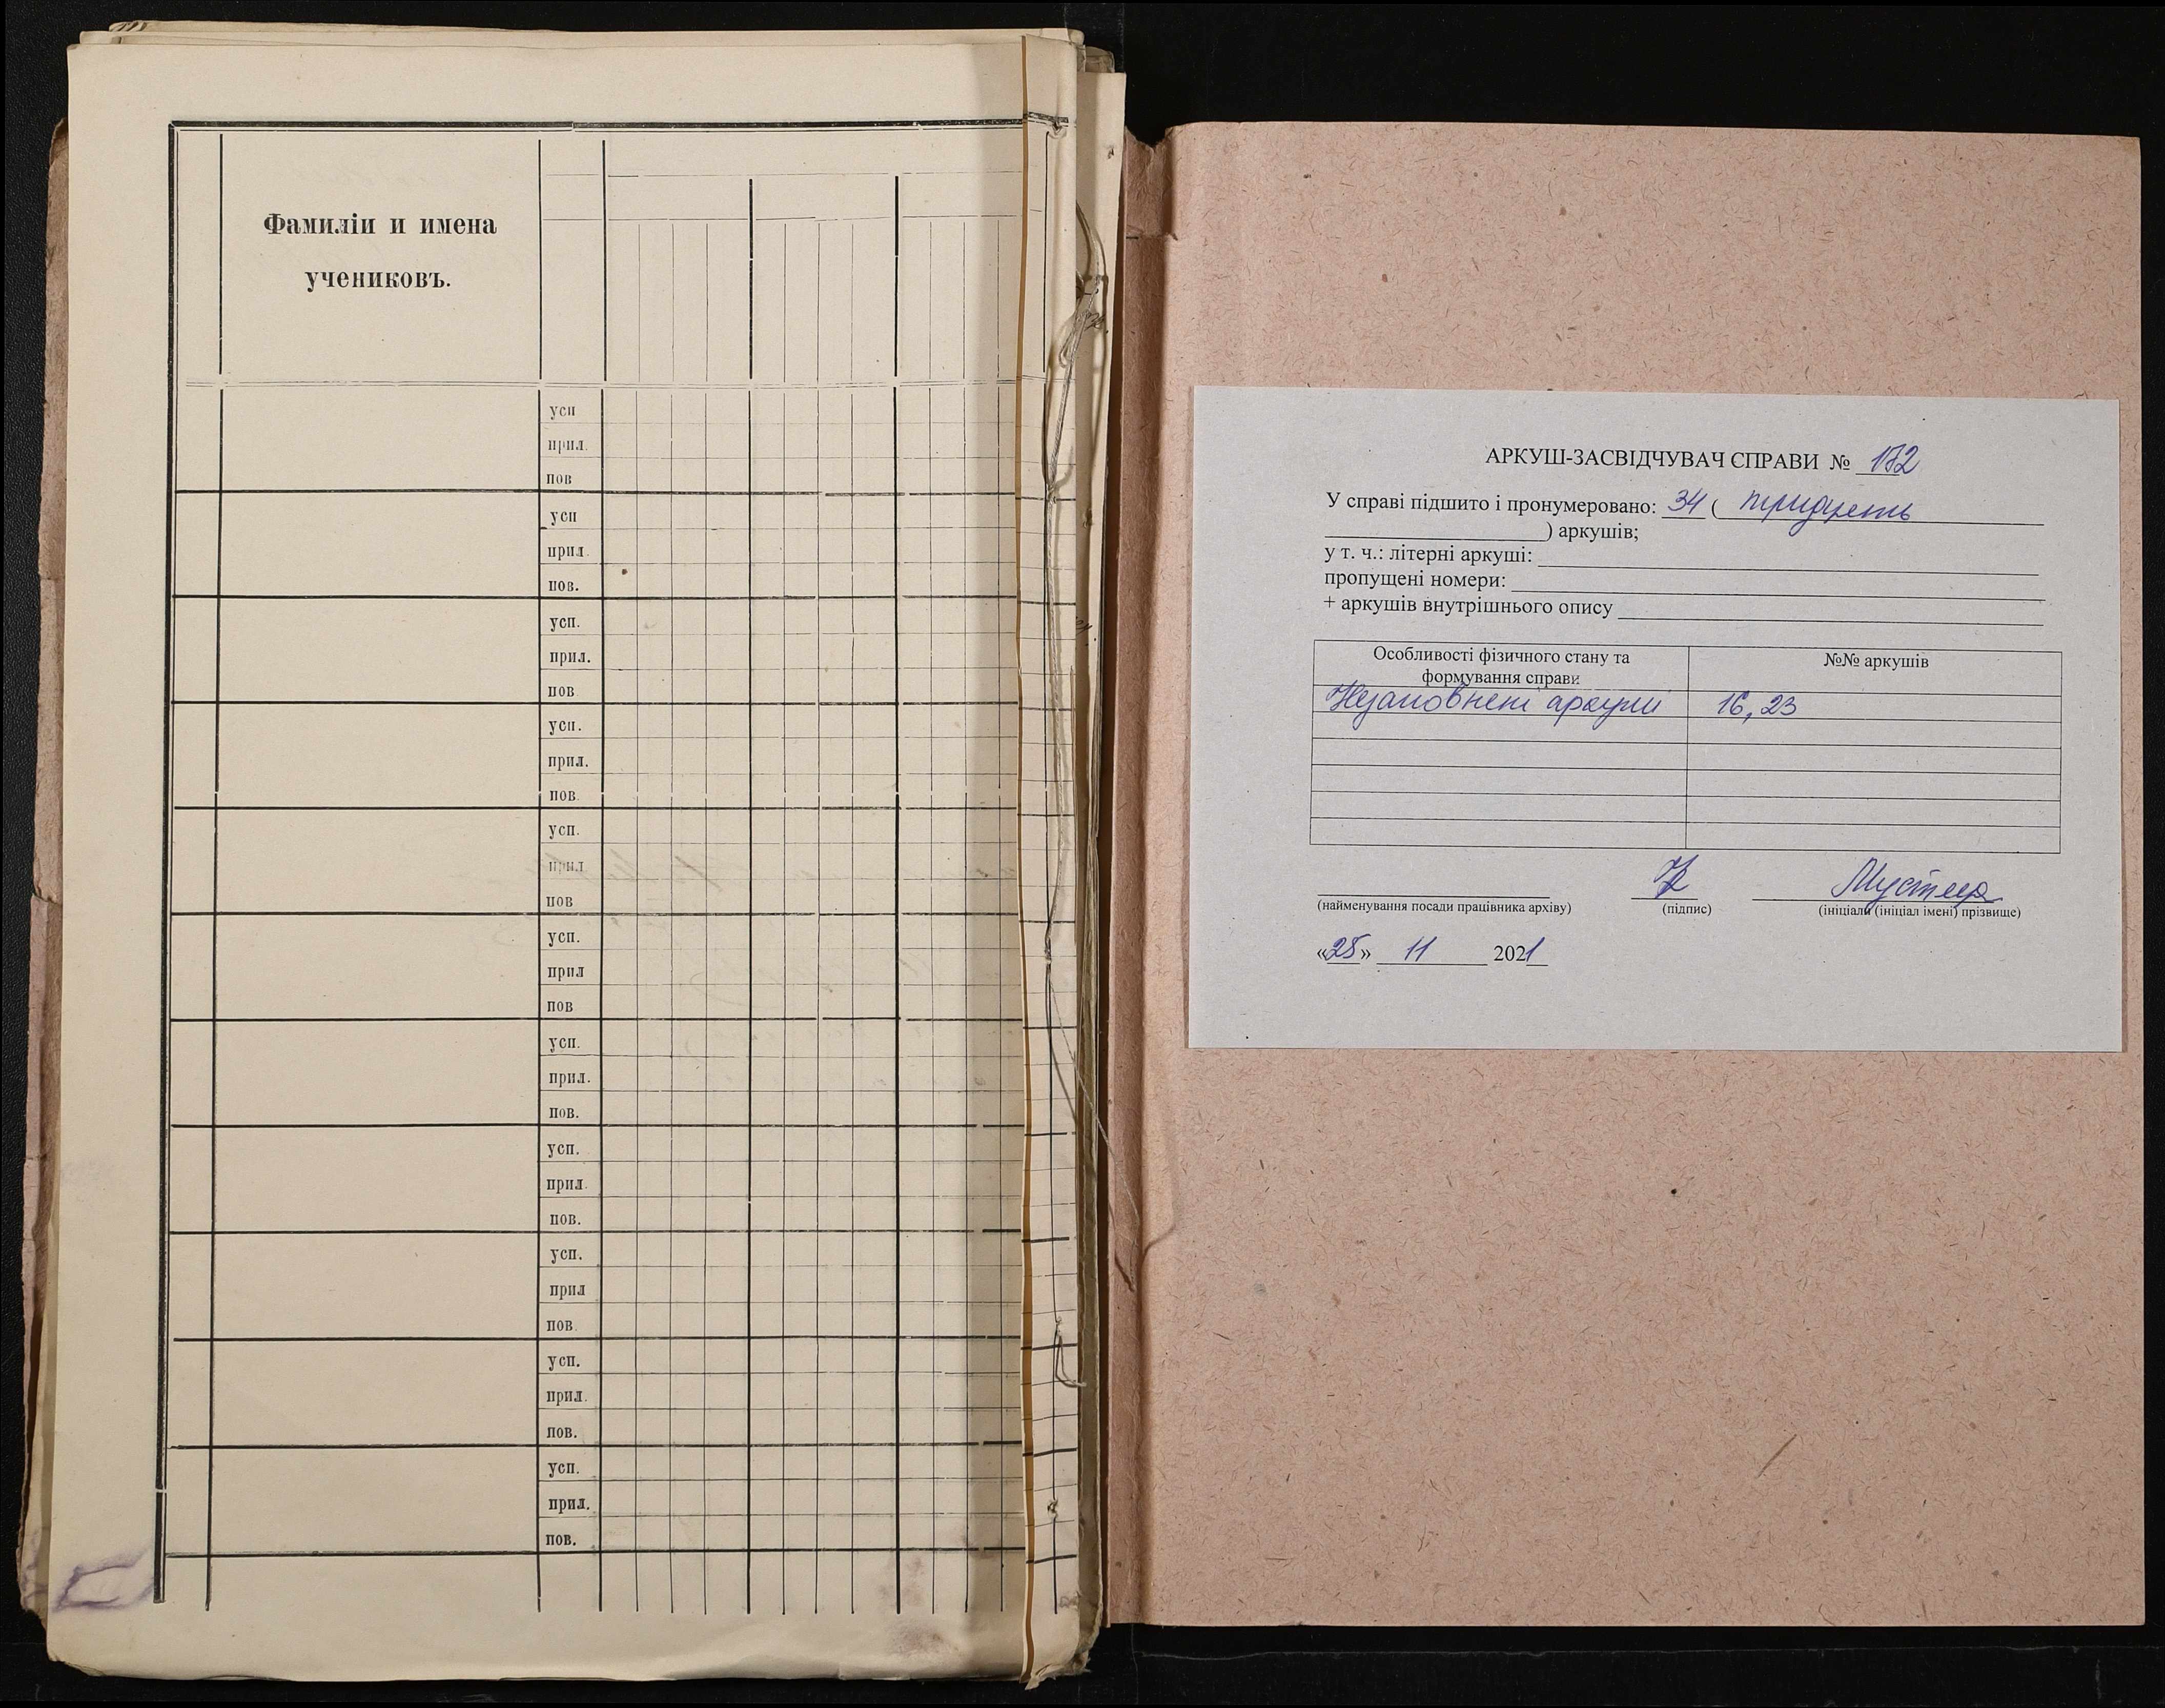 Фамиліи и имена
учениковъ.
усп
прил.
пов
усп
прил.
пов.
усп.
прил.
пов
усп.
прил.
пов.
усп.
прил
пов
усп.
прил
пов
усп.
прил.
пов.
усп.
прил.
пов.
усп.
прил
пов.
усп.
прил.
пов.
усп.
прил.
пов.
АРКУШ-ЗАСВІДЧУВАЧ СПРАВИ № 172
У справі підшито і пронумеровано: 34 (
) аркушів;
у т. ч.: літерні аркуші:
пропущені номери:
+ аркушів внутрішнього опису
Особливості фізичного стану та формування справи
№№ аркушів
Незаповнені аркуші 16, 23
(найменування посади працівника архіву) (підпис) (ініціали (ініціал імені) прізвище)
«25» 11 2021